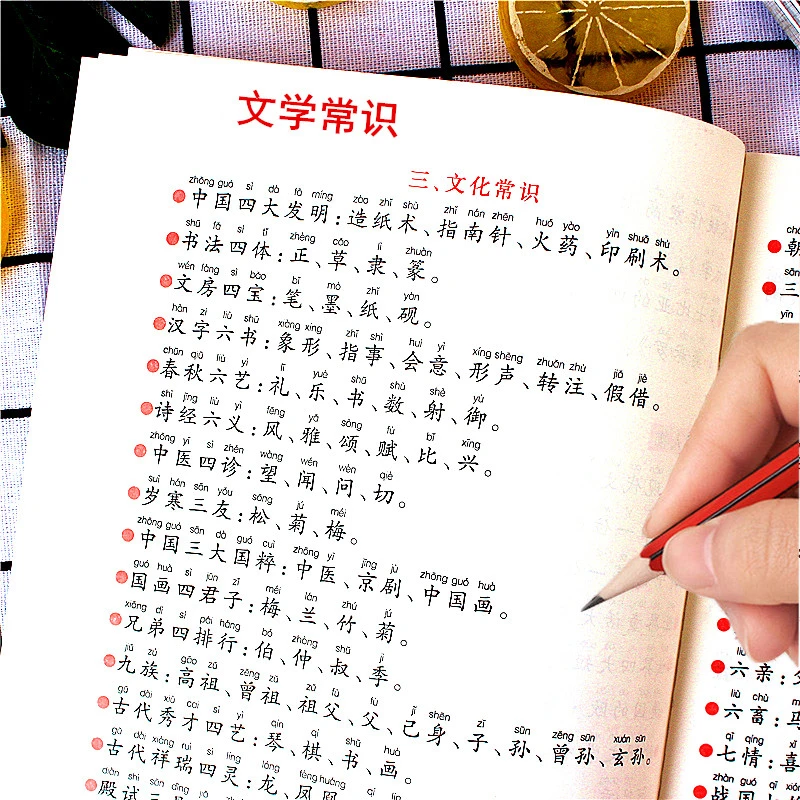 文学常识
三、文化常识
zhōng guó sì dà fā míng zào zhǐ shù zhǐ nán zhēn huǒ yào yìn shuā shù
中国四大发明：造纸术、指南针、火药、印刷术。
shū fǎ sì tǐ zhèng cǎo lì zhuàn
书法四体：正、草、隶、篆。
wén fáng sì bǎo bǐ mò zhǐ yàn
文房四宝：笔、墨、纸、砚。
hàn zì liù shū xiàng xíng zhǐ shì huì yì xíng shēng zhuǎn zhù jiǎ jiè
汉字六书：象形、指事、会意、形声、转注、假借。
chūn qiū liù yì lǐ yuè shū shù shè yù
春秋六艺：礼、乐、书、数、射、御。
shī jīng liù yì fēng yǎ sòng fù bǐ xīng
诗经六义：风、雅、颂、赋、比、兴。
zhōng yī sì zhěn wàng wén wèn qiè
中医四诊：望、闻、问、切。
suì hán sān yǒu sōng jú méi
岁寒三友：松、菊、梅。
zhōng guó sān dà guó cuì zhōng yī jīng jù zhōng guó huà
中国三大国粹：中医、京剧、中国画。
guó huà sì jūn zǐ méi lán zhú jú
国画四君子：梅、兰、竹、菊。
xiōng dì sì pái háng bó zhòng shū jì
兄弟四排行：伯、仲、叔、季。
jiǔ zú gāo zǔ zēng zǔ zǔ fù fù jǐ shēn zǐ sūn zēng sūn xuán sūn
九族：高祖、曾祖、祖父、父、己身、子、孙、曾孙、玄孙。
gǔ dài xiù cai sì yì qín qí shū huà
古代秀才四艺：琴、棋、书、画。
gǔ dài xiáng ruì sì líng lóng fèng huáng
古代祥瑞四灵：龙、凤凰
diàn shì sān dǐng jiǎ
殿试三
朝
sān
三
六亲：
liù chù
六畜：马
qī qíng xǐ
七情：喜
zhàn guó qī
战国七